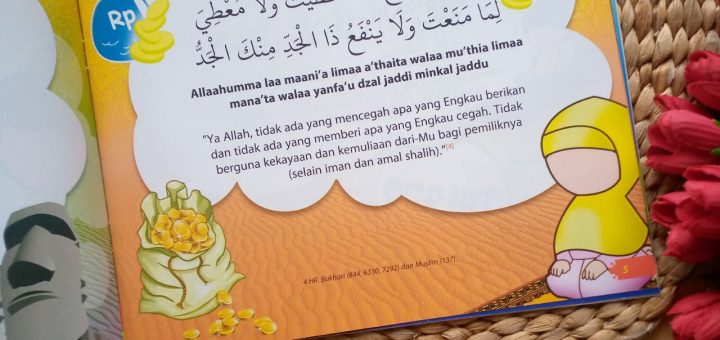 Rp
لِمَا مَنَعْتَ وَلَا يَنْفَعُ ذَا الْجَدِّ مِنْكَ الْجَدُّ
Allaahumma laa maani'a limaa a'thaita walaa mu'thia limaa
mana'ta walaa yanfa'u dzal jaddi minkal jaddu
"Ya Allah, tidak ada yang mencegah apa yang Engkau berikan
dan tidak ada yang memberi apa yang Engkau cegah. Tidak
berguna kekayaan dan kemuliaan dari-Mu bagi pemiliknya
(selain iman dan amal shalih)."[4]
4 HR. Bukhari (844, 6330, 7292) dan Muslim (137).
5